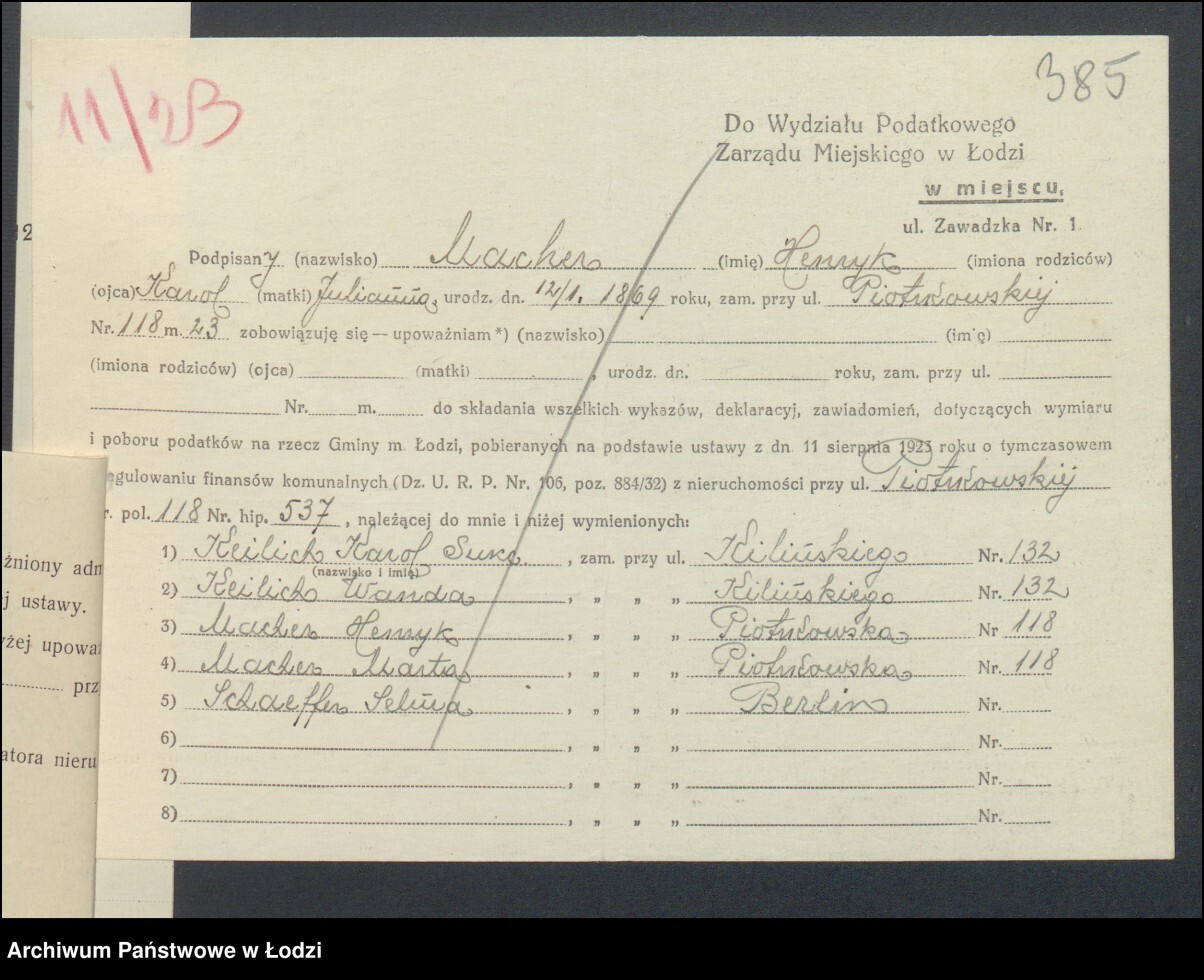 11/23
385
Do Wydziału Podatkowego
Zarządu Miejskiego w Łodzi
w miejscu,
ul. Zawadzka Nr. 1.
12
Podpisany (nazwisko) Macher (imię) Henryk (imiona rodziców)
(ojca) Karol (matki) Julianna, urodz. dn. 12/1. 1869 roku, zam. przy ul. Piotrkowskiej
Nr. 118 m. 23 zobowiązuję się — upoważniam *) (nazwisko) (imię)
(imiona rodziców) (ojca) (matki) , urodz. dn. roku, zam. przy ul.
Nr. m. do składania wszelkich wykazów, deklaracyj, zawiadomień, dotyczących wymiaru
i poboru podatków na rzecz Gminy m. Łodzi, pobieranych na podstawie ustawy z dn. 11 sierpnia 1923 roku o tymczasowem
egulowaniu finansów komunalnych (Dz. U. R. P. Nr. 106, poz. 884/32) z nieruchomości przy ul. Piotrkowskiej
r. pol. 118 Nr. hip. 537, należącej do mnie i niżej wymienionych:
1) Keilich Karol , zam. przy ul. Kilińskiego Nr. 132
(nazwisko i imię)
2) Keilich Wanda , „ „ „ Kilińskiego Nr. 132
3) Macher Henryk , „ „ „ Piotrkowska Nr 118
4) Macher Marta , „ „ „ Piotrkowska Nr. 118
5) Schaeffer Selma , „ „ „ Berlin Nr.
6) , „ „ „ Nr.
7) , „ „ „ Nr.
8) , „ „ „ Nr.
żniony adm
j ustawy.
yżej upoważ
prz
atora nieru
Archiwum Państwowe w Łodzi